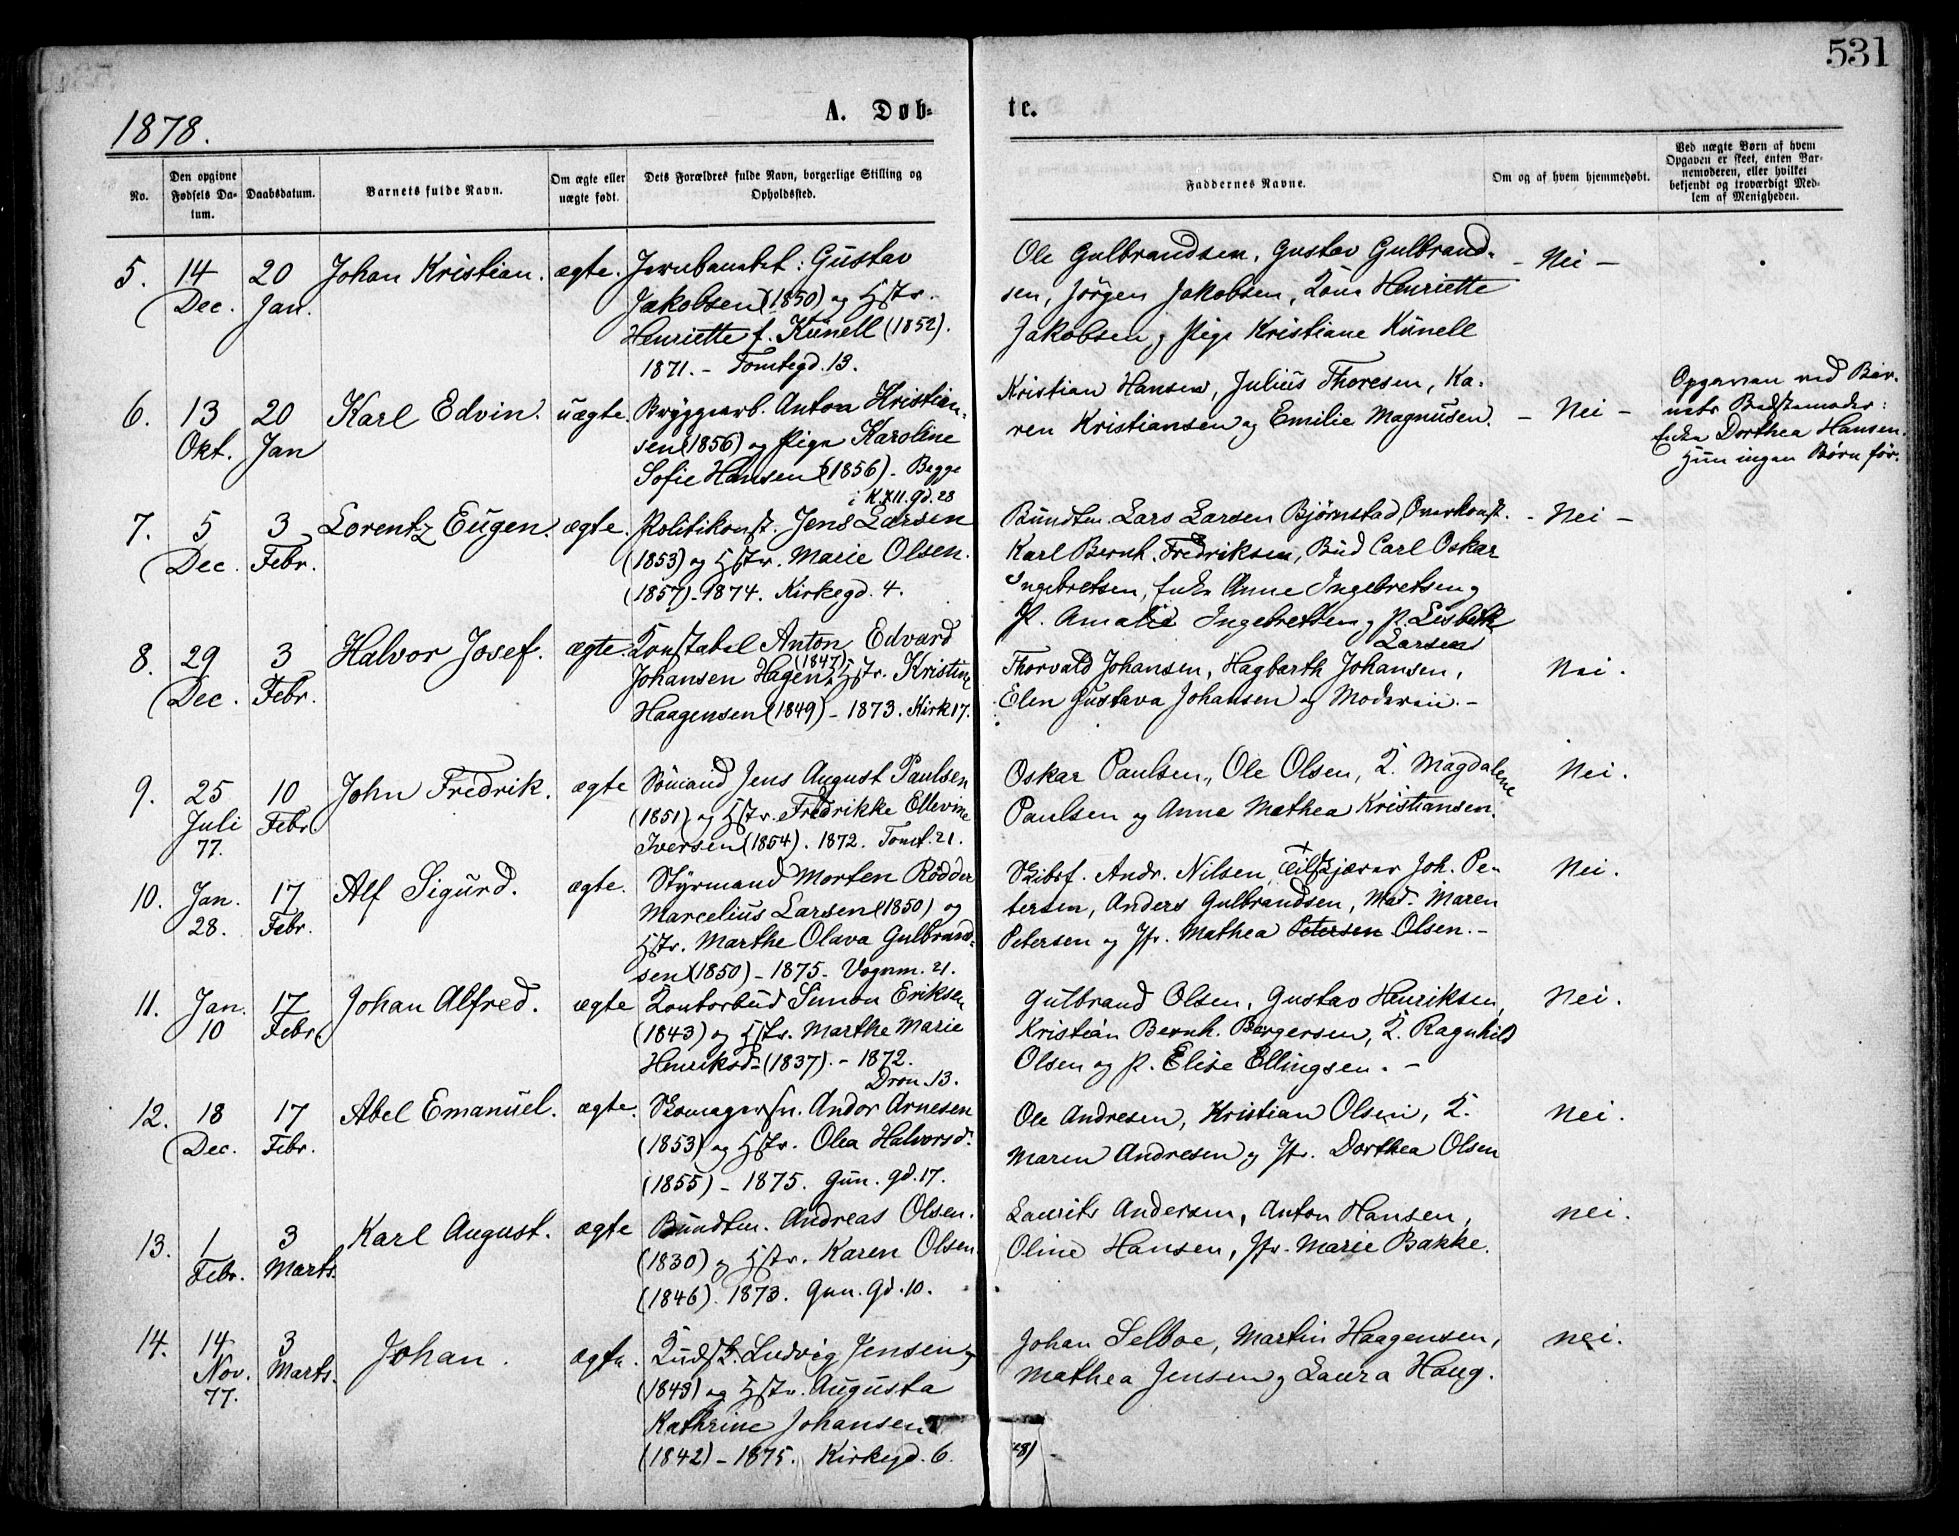 531
1878.
A. Døb-
te.
No.
Den opgivne
Fødsels Da-
tum.
Daabsdatum.
Barnets fulde Navn.
Om ægte eller
uægte født.
Dets Forældres fulde Navn, borgerlige Stilling og
Opholdssted.
Faddernes Navne.
Om og af hvem hjemmedøbt.
Ved uægte Børn af hvem
Opgaven er skeet, enten Bar-
nemoderen, eller hvilket
bekjendt og troværdigt Med-
lem af Menigheden.
5. 14 Dec. 20 Jan. Johan Kristian. ægte.
Jernbanebet: Gustav
Jakobsen (1850) og Hstr.
Henriette f. Kúnell (1852).
1871. - Tomtegd. 13.
Ole Gulbrandsen, Gustav Gulbrand-
sen, Jörgen Jakobsen, Kone Henriette
Jakobsen, Pige Kristiane Kúnell
- Nei -
6. 13 Okt. 20 Jan Karl Edvin. uægte.
Bryggearb. Anton Kristian-
sen (1856) og Pige Karoline
Sofie Hansen (1856) - Begge
i K.XII. gd. 28
Kristian Hansen, Julius Thoresen, Ka-
ren Kristiansen og Emilie Magnusen.
- Nei -
Opgaven ved Bar-
nets Bedstemoder:
Enke Dorthea Hansen.
Hun ingen Børn før.
7. 5 Dec. 3 Febr. Lorentz Eugen. ægte.
Politikonst. Jens Larsen
(1853) og Hstr. Marie Olsen.
(1857) - 1874. Kirkegd. 4.
Bundtm. Lars Larsen Bjørnstad, Overkonst.
Karl Bernh. Fredriksen, Bud Carl Oskar
Ingebretsen, Enke Anne Ingebretsen og
P. Amalie Ingebretsen og P. Lisbeth
Larsen
- Nei -
8. 29 Dec. 3 Febr. Halvor Josef. ægte.
Konstabel Anton Edvard
Johansen Hagen (1847) Hstr. Kristine
Haagensen (1849) - 1873. Kirk 17.
Thorvald Johansen, Hagbarth Johansen,
Elen Gustava Johansen og Moderen. -
Nei.
9. 25 Juli 77. 10 Febr. John Fredrik. ægte
Sömand Jens August Paulsen
(1851) og Hstr. Fredrikke Ellevine
Iversen (1854). 1872. Tomt. 21.
Oskar Paulsen, Ole Olsen, K. Magdalene
Paulsen og Anne Mathea Kristiansen.
Nei.
10. Jan. 28. 17 Febr. Alf Sigurd. ægte.
Styrmand Morten Rödder
Marcelius Larsen (1850) og
Hstr. Marthe Olava Gulbrand-
sen (1850) - 1875. Vognm. 21.
Skibsf. Andr. Nilsen, Joh. Pe-
tersen, Anders Gulbrandsen, Mad. Maren
Petersen og Jfr. Mathea Petersen Olsen. -
Nei.
11. Jan. 10 17 Febr. Johan Alfred. ægte
Kontorbud Simon Eriksen
(1843) og Hstr. Marthe Marie
Henriksd. (1837). - 1872.
Dron. 13.
Gulbrand Olsen, Gustav Henriksen,
Kristian Bernh. Borgersen, K. Ragnhild
Olsen og P. Elise Ellingsen. -
Nei.
12. 18 Dec. 17 Febr. Abel Emanuel. ægte.
Skomagersv. Andor Arnesen
(1853) og Hstr. Olea Halvorsd.
(1855) - 1875. Gun. gd. 17.
Ole Andresen, Kristian Olsen, K.
Maren Andresen og Jfr. Dorthea Olsen
Nei.
13. 1 Febr. 3 Marts. Karl August. ægte
Bundtm. Andreas Olsen.
(1830) og Hstr. Karen Olsen
(1846). 1873. Gun. Gd. 10.
Laurits Andersen, Anton Hansen,
Oline Hansen, Jfr. Marie Bakke.
nei.
14. 14 Nov. 77. 3 Marts. Johan. ægte.
Kudsk. Ludvig Jensen
(1849) og Hstr. Augusta
Kathrine Johansen
(1842) - 1875. Kirkegd. 6.
Johan Selboe, Martin Haagensen,
Mathea Jensen og Laura Haug.
nei.